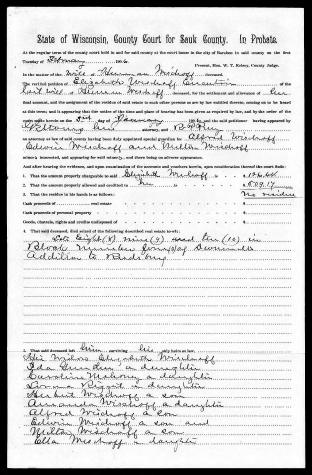 State of Wisconsin, County Court for Sauk County. In Probate.
At the regular term of the county court held in and for said county at the court house in the city of Baraboo in said county on the first
Tuesday of February 190
Present, Hon. County Judge.
In the matter of the will of Herman Wischoff deceased.
The verified petition of Elizabeth Wischoff Executrix of the
last will of Herman Wischoff, for the settlement and allowance of her
final account, and the assignment of the residue of said estate to such other persons as are by law entitled thereto, coming on to be heard
at this time; and it appearing that the notice of the time and place of hearing has been given as required by law, and by the order of the
court made herein on the day of January 190 and the said petitioner having appeared by
attorney, and
an attorney at law of said county having been duly appointed special guardian for Alfred Wischoff
Edwin Wischoff and Milton Wischoff
minors interested, and appearing for said minors, and there being no adverse appearance.
And after hearing the evidence, and upon examination of the accounts and vouchers herein, upon consideration thereof the court finds:
1. That the amount properly chargeable to said Elizabeth Wischoff is
2. That the amount properly allowed and credited to her is $
3. That the residue in her hands is as follows: No residue
Cash proceeds of real estate
Cash proceeds of personal property
Goods, chattels, rights and credits undisposed of
4. That said deceased, died seized of the following described real estate to-wit:
Lots Eight (8) nine (9) and ten (10) in
Block number
Addition to Reedsburg
5. That said deceased left him surviving his only heirs at law,
His widow Elizabeth Wischoff
Ida a daughter
Caroline Mahoney a daughter
a daughter
Herbert Wischoff a son
Amanda Wischoff a daughter
Alfred Wischoff a son
Edwin Wischoff a son and
Milton Wischoff a son
Ella Wischoff a daughter